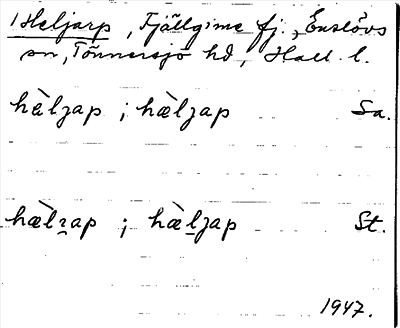 1 Heljarp, Fjällgime fj., Enslövs
sn, Tönnersjö hd, Hall l.
hὲlȷap ; hæ̀lȷap Sa.
hæ̀lɿap ; hæ̀lȷap St.
1947.